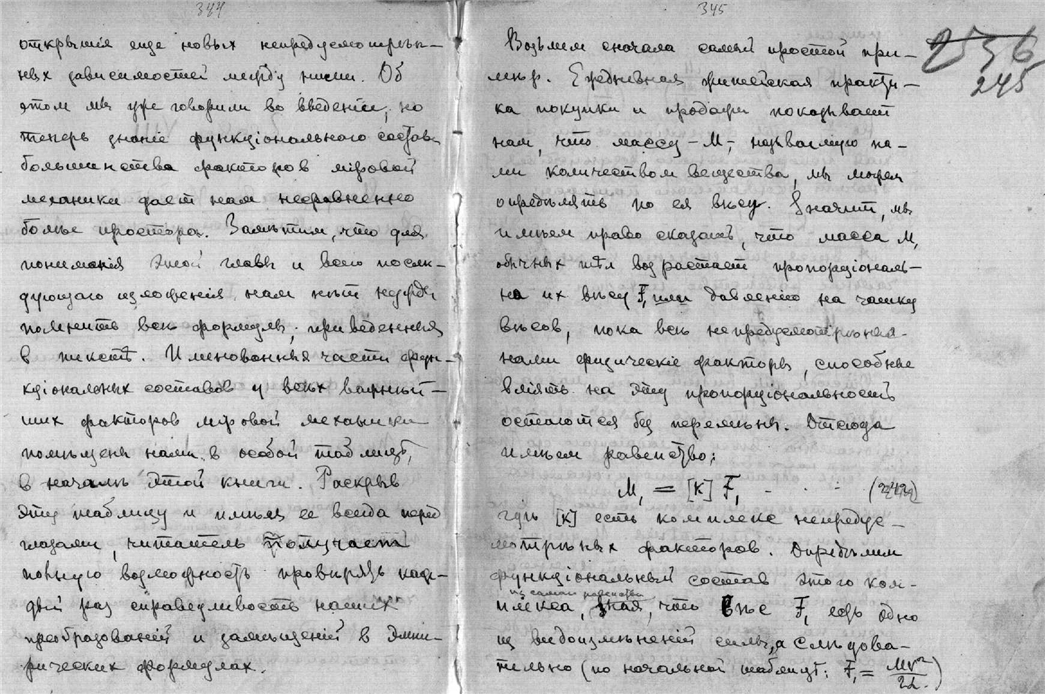 344
открытія еще новыхъ непредусмотрѣн-
ныхъ зависимостей между ними. Объ
этомъ мы уже говорили во введеніи, но
теперь знаніе функціональнаго состава
большинства факторовъ міровой
механики даетъ намъ несравненно
болѣе простора. Замѣтимъ, что для
пониманія этой главы и всего послѣ-
дующаго изложенія намъ нѣтъ нужды
помнить всѣ формулы, приведенныя
в текстѣ. Именованныя части функ-
ціональныхъ составовъ у всѣхъ важнѣй-
шихъ факторовъ міровой механики
помѣщены нами в особой таблицѣ,
в началѣ этой книги. Раскрывъ
эту таблицу и имѣя ее всегда передъ
глазами, читатель получаетъ
полную возможность провѣрять каж-
дый разъ справедливость нашихъ
преобразованій и замѣщеній в эмпи-
рическихъ формулахъ.
345
2536
245
Возьмем сначала самый простой при-
мѣръ. Ежедневная житейская практи-
ка покупки и продажи показываетъ
намъ, что массу – M –, называемую на-
ми количествомъ вещества, мы можемъ
опредѣлять по ея вѣсу. Значитъ, мы
имѣемъ право сказать, что масса M₁
обычныхъ тѣлъ возрастаетъ пропорціональ-
на ихъ вѣсу F₁ или давленію на чашку
вѣсовъ, пока всѣ непредусмотрѣнные
нами физическіе факторы, способные
вліять на эту пропорціональность
остаются безъ перемѣны. Отсюда
имѣемъ равенство:
M₁ = [K] F₁ - - - (242)
гдѣ [K] есть комплексъ непредус-
мотрѣнныхъ факторовъ. Опредѣлимъ
функціональный составъ этого ком-
изъ самаго равенства
плекса, зная, что вѣсъ F₁ есть одно
изъ видоизмѣненій силы, а слѣдова-
тельно (по начальной таблицѣ: F₁ = Mv²/2L)